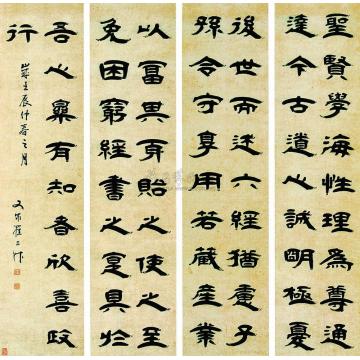 聖賢學海性理為尊通
達今古遺心誠明極憂
後世而述六經猶慮子
孫令守享用若藏產業
以冨貽之使之至
免困窮經書之具於
吾心有知者欣喜政
行
歲壬辰仲春之月